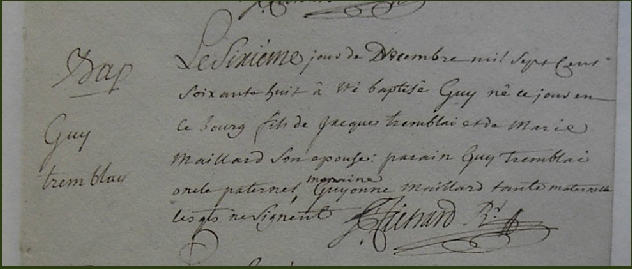 Bap
Guy
tremblay
Le Sixiéme jour de Decembre mil Sept Cent
soixante huit à été baptisé Guy né ce jour en
ce bourg fils de Jacque tremblai et de Marie
Maillard Son epouse: parain Guy tremblai
oncle paternel, maraine Guyonne Maillard tante maternelle
lesqls ne Signent